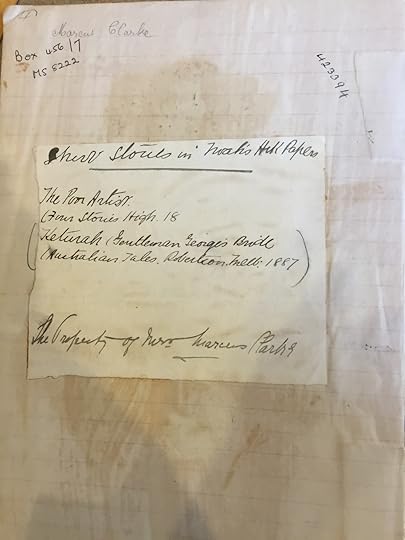 Marcus Clarke
Box 456/7
MS 8222
423394
Short Stories in Noah's Ark Papers
The Poor Artist
(Four Stories High. 18
Keturah (Gentleman George's Bride
(Australian Tales. Robertson. Melb. 1887)
The Property of Mrs Marcus Clarke